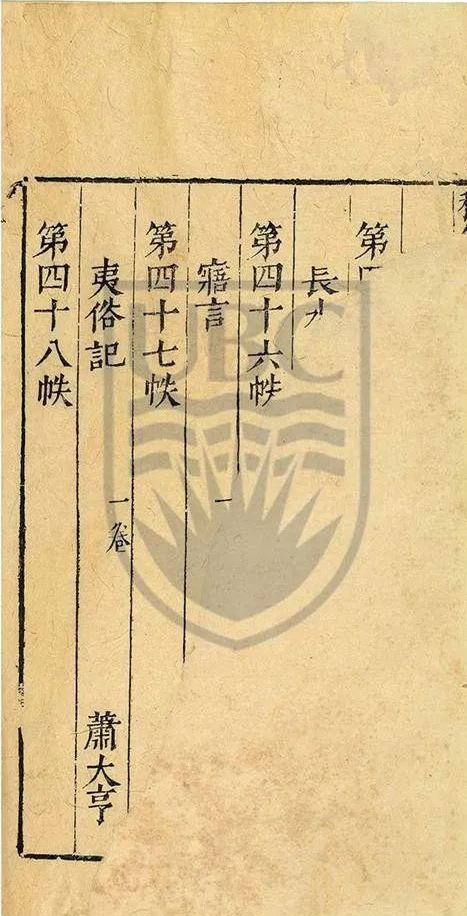 第
長
第四十六帙
寤言 一
第四十七帙
夷俗記 一卷 蕭大亨
第四十八帙
UBC